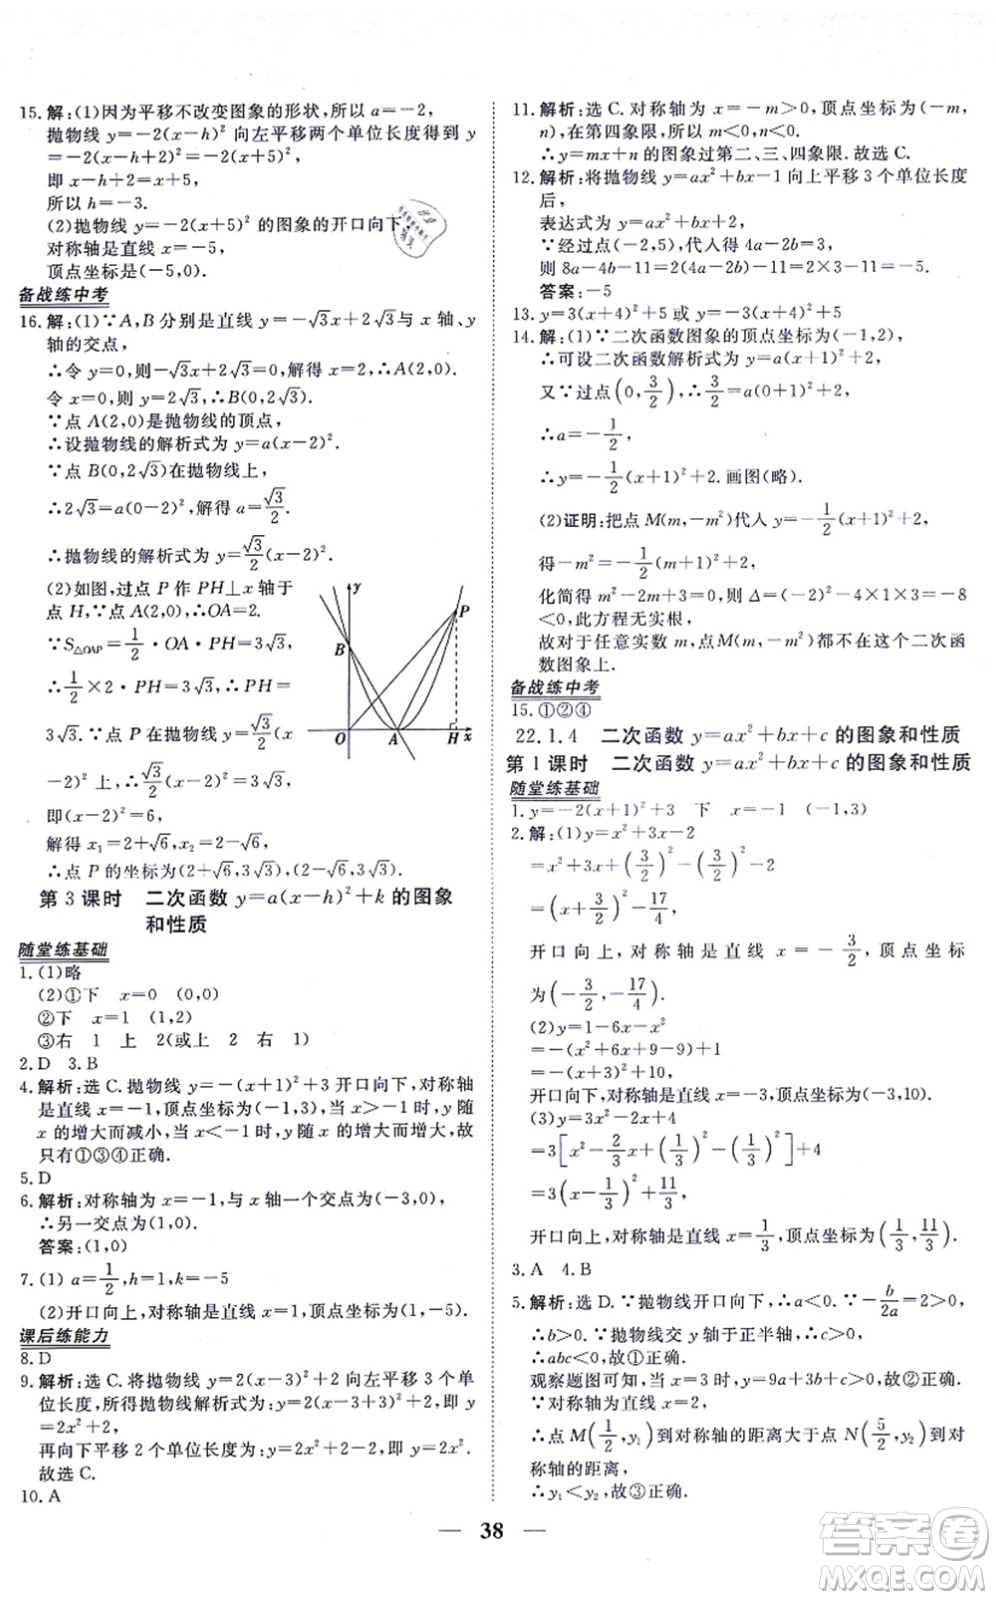 15. 解:(1)因为平移不改变图象的形状,所以 a=-2,
抛物线 y=-2(x-h)² 向左平移两个单位长度得 y
=-2(x-h+2)²=-2(x+5)²,
即 -h+2=5,
所以 h=-3.
(2)抛物线 y=-2(x+5)² 的图象的开口向下,
对称轴是直线 x=-5,
顶点坐标是(-5,0).
备战练中考
16. 解:(1)∵A,B 分别是直线 y=-√3x+2√3 与 x 轴、y
轴的交点,
∴令 y=0,则-√3x+2√3=0,解得 x=2.∴A(2,0).
令 x=0,则 y=2√3.∴B(0,2√3).
∵点 A(2,0)是抛物线的顶点,
∴设抛物线的解析式为 y=a(x-2)².
∵点 B(0,2√3)在抛物线上,
∴2√3=a(0-2)²,解得 a=√3/2.
∴抛物线的解析式为 y=√3/2(x-2)².
(2)如图,过点 P 作 PH⊥x 轴于
点 H,∵点 A(2,0).∴OA=2.
∵S△OAP=1/2·OA·PH=3√3,
∴1/2×2·PH=3√3,∴PH=
3√3.∵点 P 在抛物线 y=√3/2(x
-2)² 上,∴3√3=√3/2(x-2)²,
即(x-2)²=6,
解得 x₁=2+√6,x₂=2-√6,
∴点 P 的坐标为(2+√6,3√3),(2-√6,3√3).
y
P
B
O
A
H
x
第 3 课时 二次函数 y=a(x-h)²+k 的图象
和性质
随堂练基础
1. (1)略
(2)①下 x=0 (0,0)
②下 x=1 (1,2)
③右 1 上 2(或上 2 右 1)
2. D 3. B
4. 解析:选 C. 抛物线 y=-(x+1)²+3 开口向下,对称轴
是直线 x=-1,顶点坐标为(-1,3),当 x>-1 时,y 随
x 的增大而减小,当 x<-1 时,y 随 x 的增大而增大,故
只有①③④正确.
5. D
6. 解析:对称轴为 x=-1,与 x 轴一个交点为(-3,0),
∴另一交点为(1,0).
答案:(1,0)
7. (1) a=1/2,h=1,k=-5
(2)开口向上,对称轴是直线 x=1,顶点坐标为(1,-5).
课后练能力
8. D
9. 解析:选 C. 将抛物线 y=2(x-3)²+2 向左平移 3 个单
位长度,所得抛物线解析式为 y=2(x-3+3)²+2,即
y=2x²+2,
再向下平移 2 个单位长度为:y=2x²+2-2,即 y=2x².
故选 C.
10. A
11. 解析:选 C. 对称轴为 x=-m>0,顶点坐标为(-m,
n),在第四象限,所以 m<0,n<0.
∴y=mx+n 的图象过第二、三、四象限.故选 C.
12. 解析:将抛物线 y=ax²+bx-1 向上平移 3 个单位长度
后,
表达式为 y=ax²+bx+2,
∵经过点(-2,5),代入得 4a-2b=3,
则 8a-4b-11=2(4a-2b)-11=2×3-11=-5.
答案:-5
13. y=3(x+4)²+5 或 y=-3(x+4)²+5
14. 解:(1)∵二次函数图象的顶点坐标为(-1,2),
∴可设二次函数解析式为 y=a(x+1)²+2,
又∵过点(0,3/2),∴3/2=a(0+1)²+2,
∴a=-1/2,
∴y=-1/2(x+1)²+2.画图(略).
(2)证明:把点 M(m,-m²)代入 y=-1/2(x+1)²+2,
得-m²=-1/2(m+1)²+2,
化简得 m²-2m+3=0,则 Δ=(-2)²-4×1×3=-8
<0,此方程无实根,
故对于任意实数 m,点M(m,-m²)都不在这个二次函
数图象上.
备战练中考
15. ①②④
22.1.4 二次函数 y=ax²+bx+c 的图象和性质
第 1 课时 二次函数 y=ax²+bx+c 的图象和性质
随堂练基础
1. y=-2(x+1)²+3 下 x=-1 (-1,3)
2. 解:(1)y=x²+3x-2
=x²+3x+(3/2)²-(3/2)²-2
=(x+3/2)²-17/4,
开口向上,对称轴是直线 x=-3/2,顶点坐标
为(-3/2,-17/4).
(2)y=1-6x-x²
=-(x²+6x+9-9)+1
=-(x+3)²+10,
开口向下,对称轴是直线 x=-3,顶点坐标为(-3,10).
(3)y=3x²-2x+4
=3[x²-2/3x+(1/3)²-(1/3)²]+4
=3(x-1/3)²+11/3,
开口向上,对称轴是直线 x=1/3,顶点坐标为(1/3,11/3).
3. A 4. B
5. 解析:选 D. ∵抛物线开口向下,∴a<0.∵-b/2a=2>0,
∴b>0.∵抛物线交 y 轴于正半轴,∴c>0,
∴abc<0,故①正确.
观察题图可知,当 x=3 时,y=9a+3b+c>0,故②正确.
∵对称轴为直线 x=2,
∴点 M(1/2,y₁)到对称轴的距离大于点 N(5/2,y₂)到对
称轴的距离,
∴y₁<y₂,故③正确.
38
答案圈
MXQE.COM